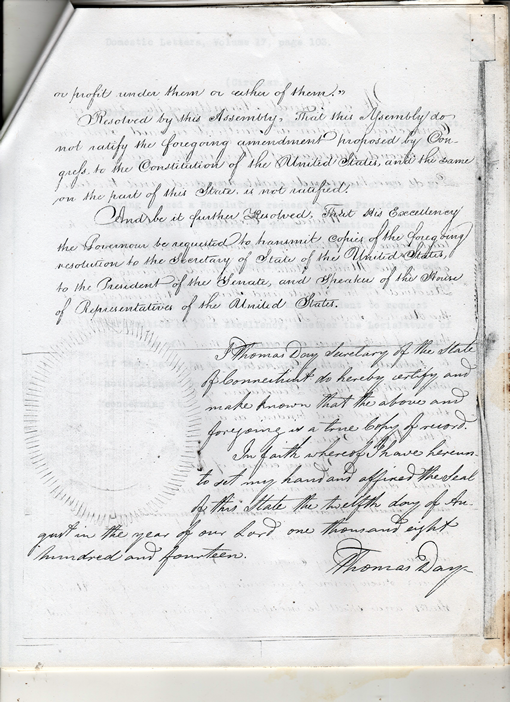 Domestic Letters, Volume 17, page 100.
or profit under them or either of them."
Resolved by this Assembly, That this Assembly do
not ratify the foregoing amendment proposed by Con-
gress, to the Constitution of the United States, and the same
on the part of this State is not ratified.
And be it further Resolved, That His Excellency
the Governour be requested to transmit copies of the foregoing
resolution to the Secretary of State of the United States,
to the President of the Senate, and Speaker of the House
of Representatives of the United States.
I Thomas Day Secretary of the State
of Connecticut do hereby certify and
make known that the above and
foregoing is a true Copy of record.
In faith whereof I have hereun-
to set my hand and affixed the Seal
of this State the twelfth day of Au-
gust in the year of our Lord one thousand eight
hundred and fourteen.
Thomas Day